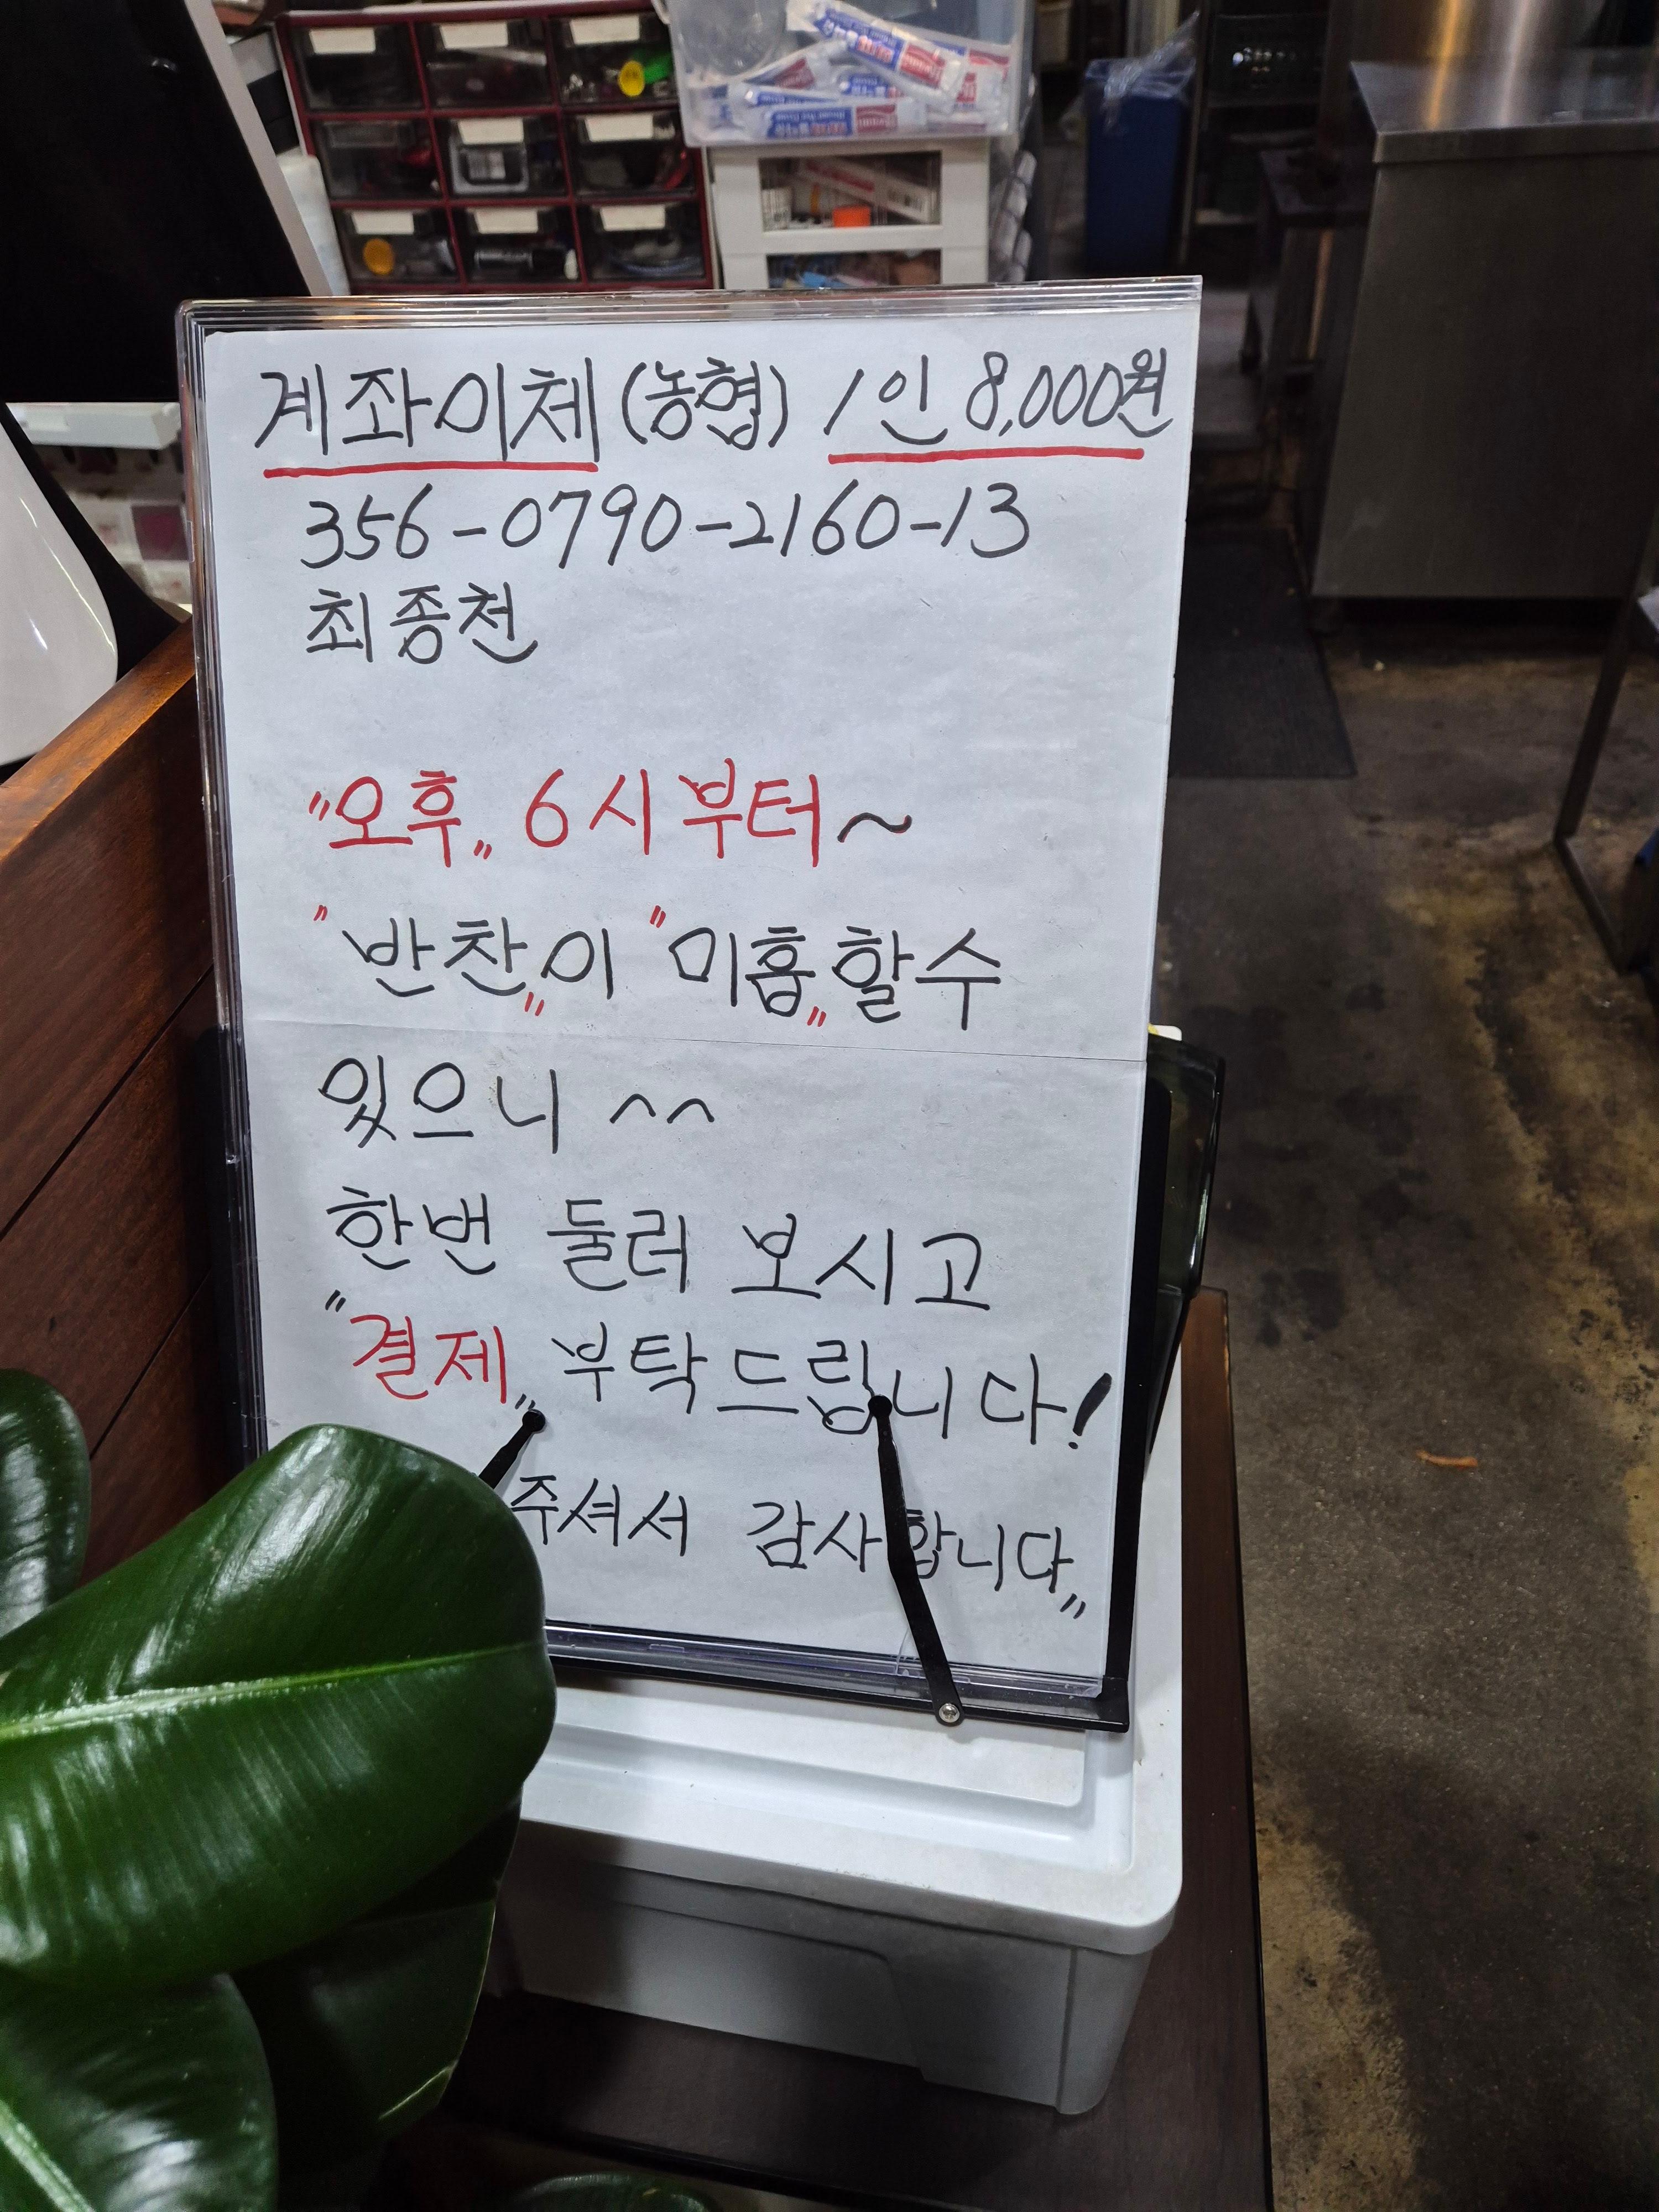 계좌이체 (농협) 1인 8,000원
356-0790-2160-13
최종천
"오후" 6시부터~
"반찬"이 "미흡"할수
있으니 ^^
한번 둘러 보시고
"결제" 부탁드립니다!
주셔서 감사합니다"